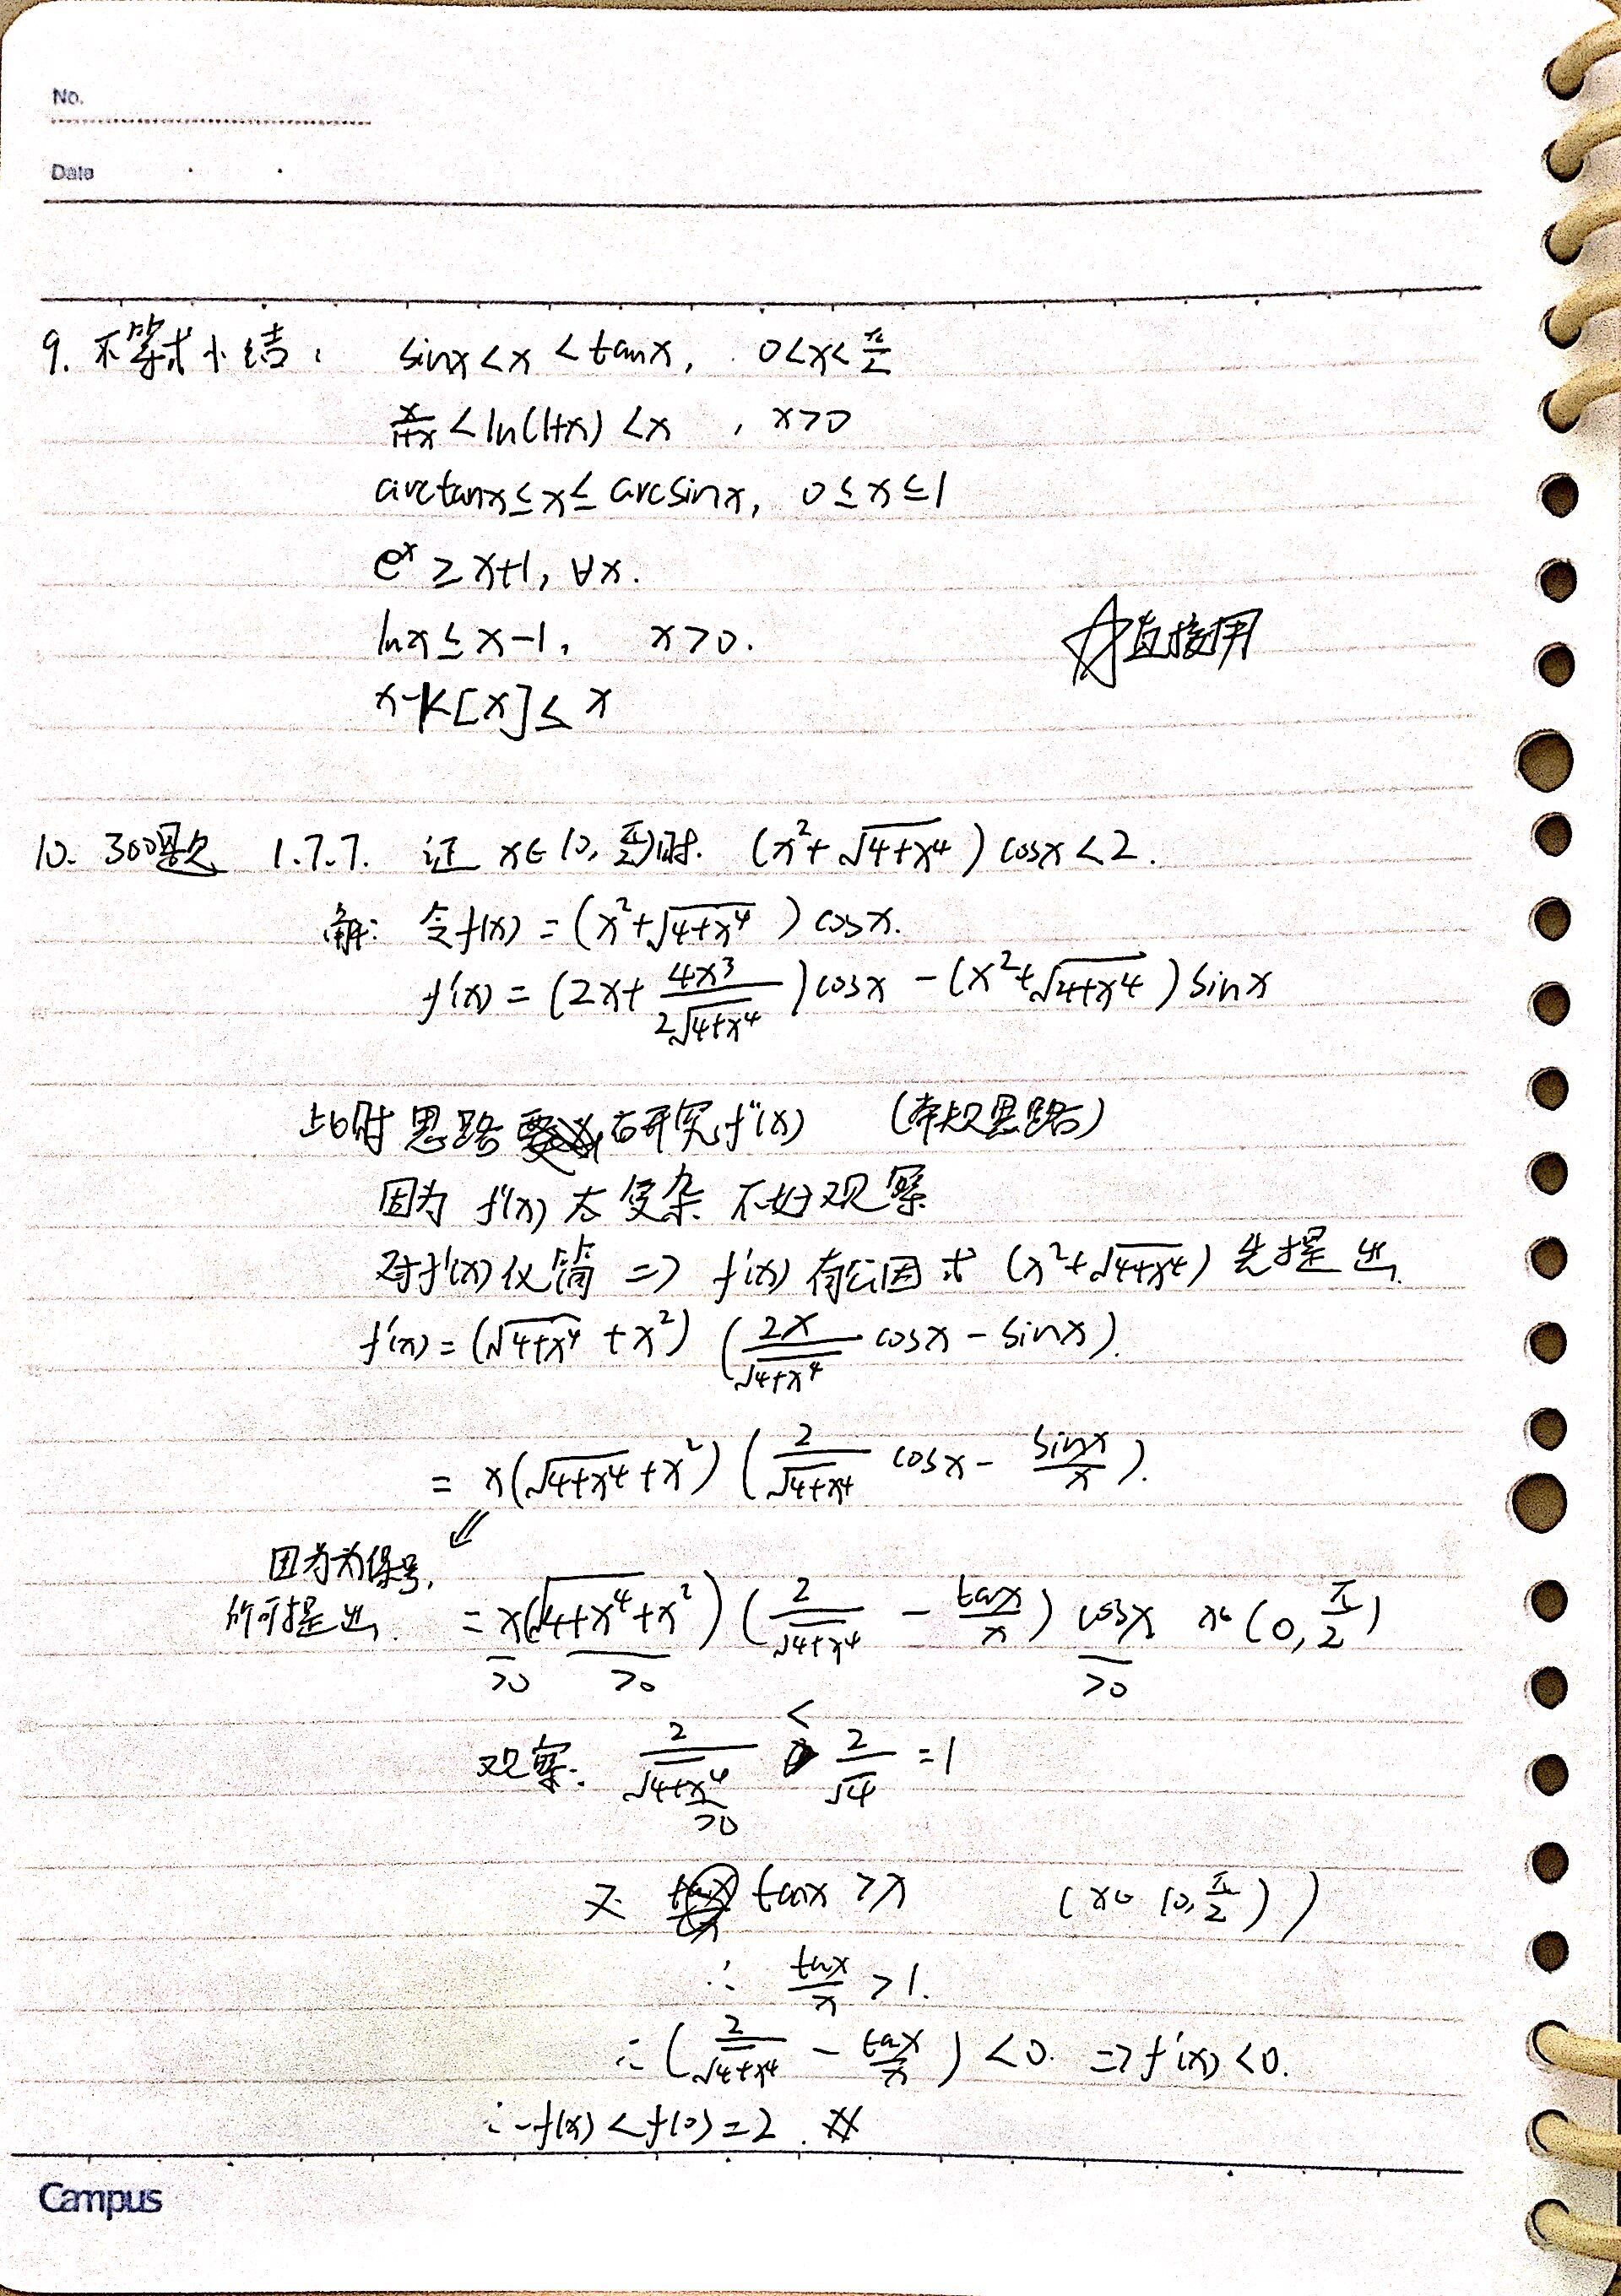 No.
Date
9. 不等式小结： sinx<x<tanx, 0<x<π/2
x/(1+x) <ln(1+x)<x , x>0
arctanx≤x≤arcsinx, 0≤x≤1
eˣ≥x+1, ∀x.
lnx≤x-1, x>0.
☆直接用
x-1<[x]≤x
10. 300题 1.7.7. 证 x∈(0, π/2)时. (x²+√(4+x⁴))cosx<2.
解: 令f(x)=(x²+√(4+x⁴))cosx.
f'(x)=(2x+4x³/(2√(4+x⁴)))cosx-(x²+√(4+x⁴))sinx
此时思路 研究f''(x) (常规思路)
因为 f'(x)太复杂 不好观察
对f'(x)化简 => f'(x)有公因式(x²+√(4+x⁴))先提出.
f'(x)=(√(4+x⁴)+x²)(2x/√(4+x⁴) cosx-sinx).
=x(√(4+x⁴)+x²)(2/√(4+x⁴) cosx-sinx/x).
⇙
因为为保号,
所可提出. =x(√(4+x⁴)+x²)(2/√(4+x⁴) - tanx/x)cosx x∈(0, π/2)
>0 >0 >0
观察: 2/√(4+x⁴) < 2/√4 =1
>0
又 tanx>x (x∈(0, π/2))
∴ tanx/x >1.
∴(2/√(4+x⁴) - tanx/x)<0. =>f'(x)<0.
∴f(x)<f(0)=2. #
Campus